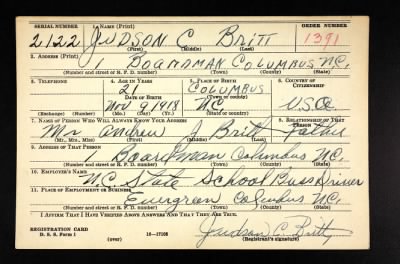 SERIAL NUMBER 1. NAME (Print) ORDER NUMBER
2122 JUDSON C BRITT 1391
(First) (Middle) (Last)
2. ADDRESS (Print)
1 BOARDMAN COLUMBUS N.C.
(Number and street or R. F. D. number) (Town) (County) (State)
3. TELEPHONE 4. AGE IN YEARS 5. PLACE OF BIRTH 6. COUNTRY OF CITIZENSHIP
21 COLUMBUS
DATE OF BIRTH (Town or county)
Nov 9 1918 NC USA
(Exchange) (Number) (Mo.) (Day) (Yr.) (State or country)
7. NAME OF PERSON WHO WILL ALWAYS KNOW YOUR ADDRESS 8. RELATIONSHIP OF THAT PERSON
Mr Andrew J Britt Father
(Mr., Mrs., Miss) (First) (Middle) (Last)
9. ADDRESS OF THAT PERSON
Boardman Columbus N.C.
(Number and street or R. F. D. number) (Town) (County) (State)
10. EMPLOYER'S NAME
N.C. State School Buss Driver
11. PLACE OF EMPLOYMENT OR BUSINESS
Evergreen Columbus N.C.
(Number and street or R. F. D. number) (Town) (County) (State)
I AFFIRM THAT I HAVE VERIFIED ABOVE ANSWERS AND THAT THEY ARE TRUE.
REGISTRATION CARD
D. S. S. Form 1 16—17105 Judson C. Britt
(over) (Registrant's signature)